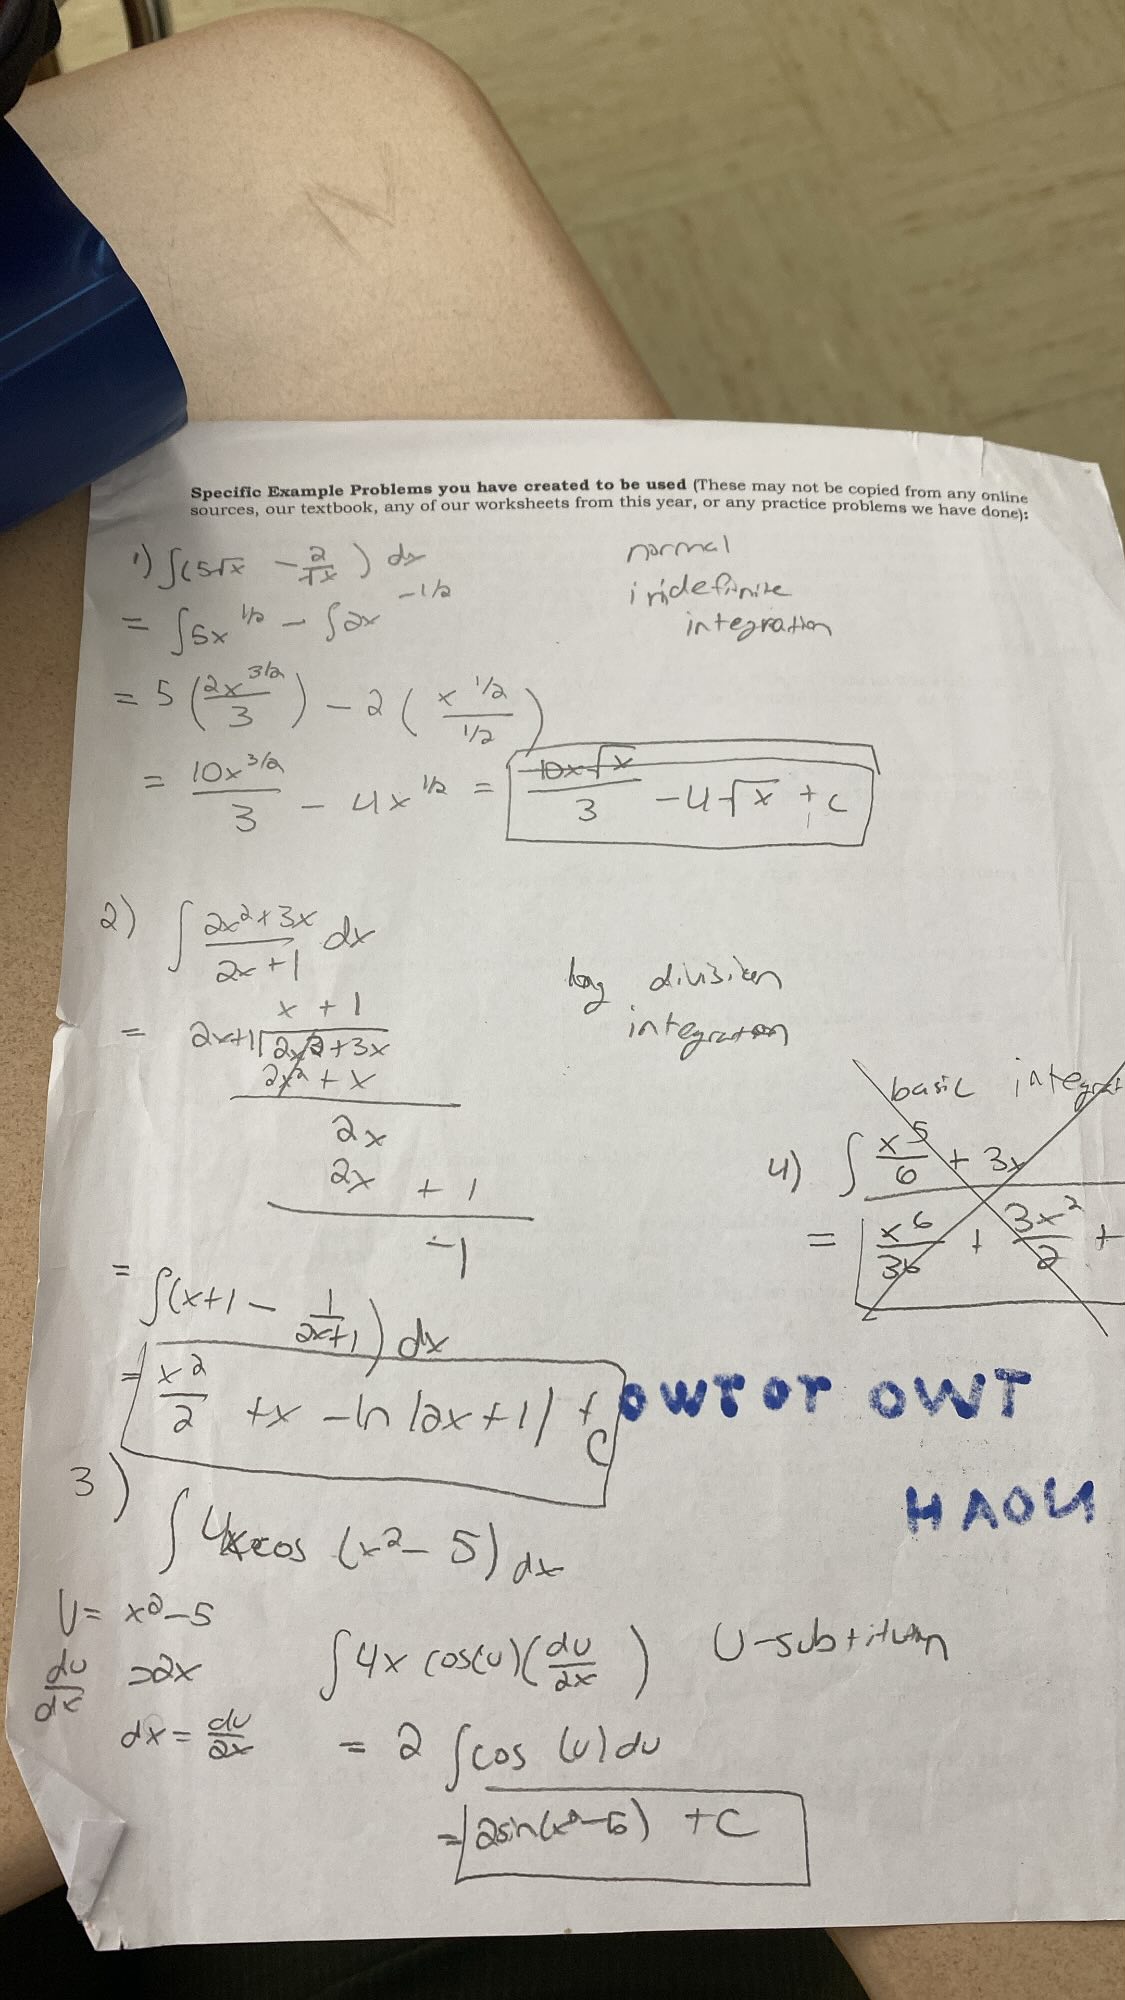 Specific Example Problems you have created to be used (These may not be copied from any online
sources, our textbook, any of our worksheets from this year, or any practice problems we have done):
1) ∫(5√x - 2/√x) dx
normal
indefinite
integration
= ∫5x^1/2 - ∫2x^-1/2
= 5(2x^3/2 / 3) - 2(x^1/2 / 1/2)
= 10x^3/2 / 3 - 4x^1/2 = 10x√x / 3 - 4√x + C
2) ∫ 2x²+3x / 2x+1 dx
long division
integration
x + 1
= 2x+1 2x²+3x
2x² + x
2x
2x + 1
-1
= ∫(x+1 - 1/2x+1) dx
= x²/2 + x - ln|2x+1| + C
basic integrat
4) ∫ x^5/6 + 3x
= x^6/36 + 3x²/2 +
OWT OT OWT
HAOU
3) ∫ 4x cos (x²-5) dx
U = x²-5
du/dx = 2x
dx = du/2x
∫4x cos(u)(du/2x)
U-substitution
= 2 ∫cos (u) du
= 2sin(x²-5) + C